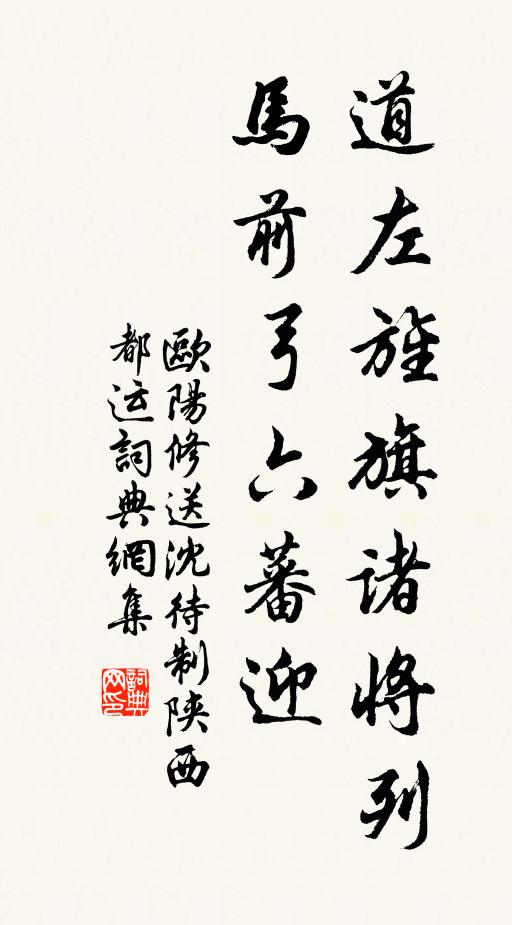 道左旌旗诸将列
馬前弓六蕃迎
歐陽修送沈待制陕西
都运詞典網集
詞典网印